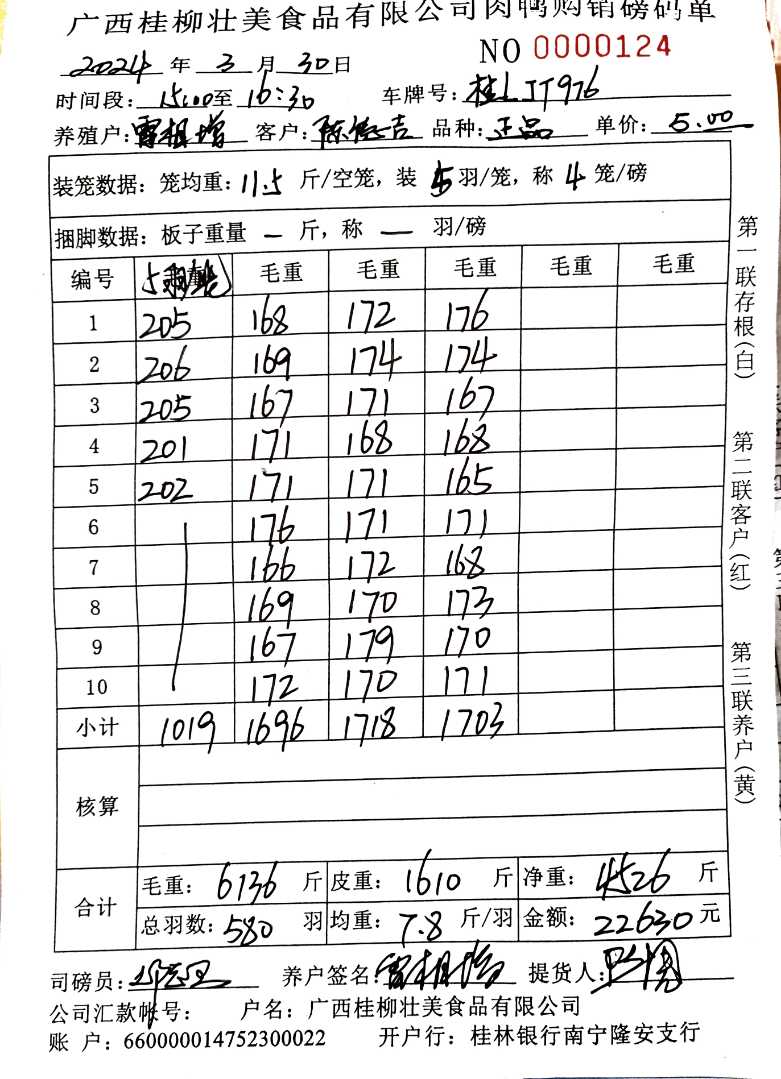 广西桂柳壮美食品有限公司肉鸭购销磅码单
NO 0000124
2024 年 3 月 30 日
时间段: 15:00 至 16:30 车牌号: 桂LJT976
养殖户: 雷相增 客户: 陈德吉 品种: 正品 单价: 5.00
装笼数据: 笼均重: 11.5 斤/空笼, 装 5 羽/笼, 称 4 笼/磅
捆脚数据: 板子重量 — 斤, 称 — 羽/磅
编号 5羽 毛重 毛重 毛重 毛重 毛重
1 205 168 172 176
2 206 169 174 174
3 205 167 171 167
4 201 171 168 168
5 202 171 171 165
6 176 171 171
7 166 172 168
8 169 170 173
9 167 179 170
10 172 170 171
小计 1019 1696 1718 1703
核算
合计 毛重: 6136 斤 皮重: 1610 斤 净重: 4526 斤
总羽数: 580 羽 均重: 7.8 斤/羽 金额: 22630 元
司磅员: 养户签名: 雷相增 提货人:
公司汇款帐号: 户名: 广西桂柳壮美食品有限公司
账 户: 660000014752300022 开户行: 桂林银行南宁隆安支行
第一联存根(白)
第二联客户(红)
第三联养户(黄)